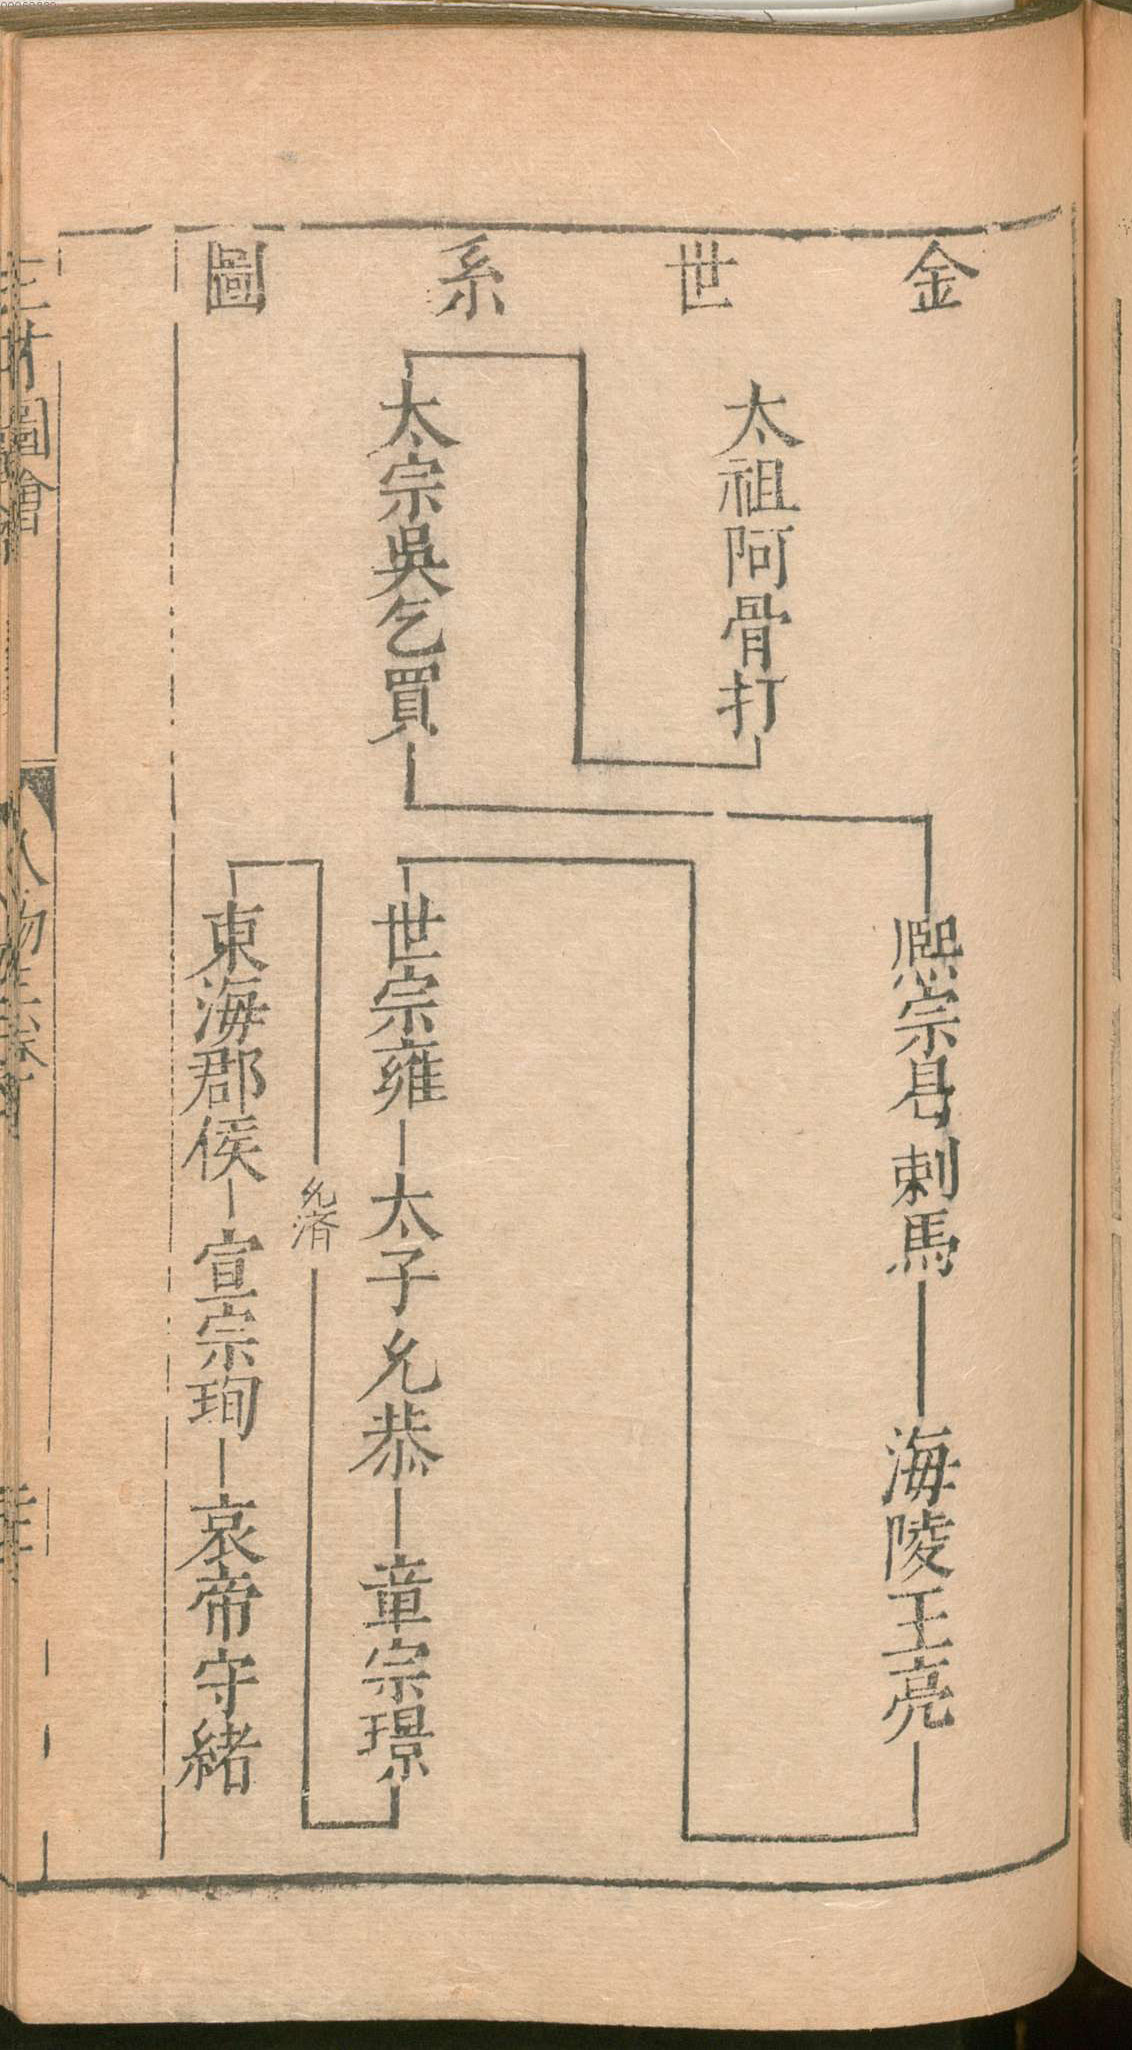 金世系圖
太祖阿骨打
太宗吳乞買
熙宗曷剌馬
海陵王亮
世宗雍
太子允恭
章宗璟
允濟
東海郡侯
宣宗珣
哀帝守緒
三才圖會
人物三卷